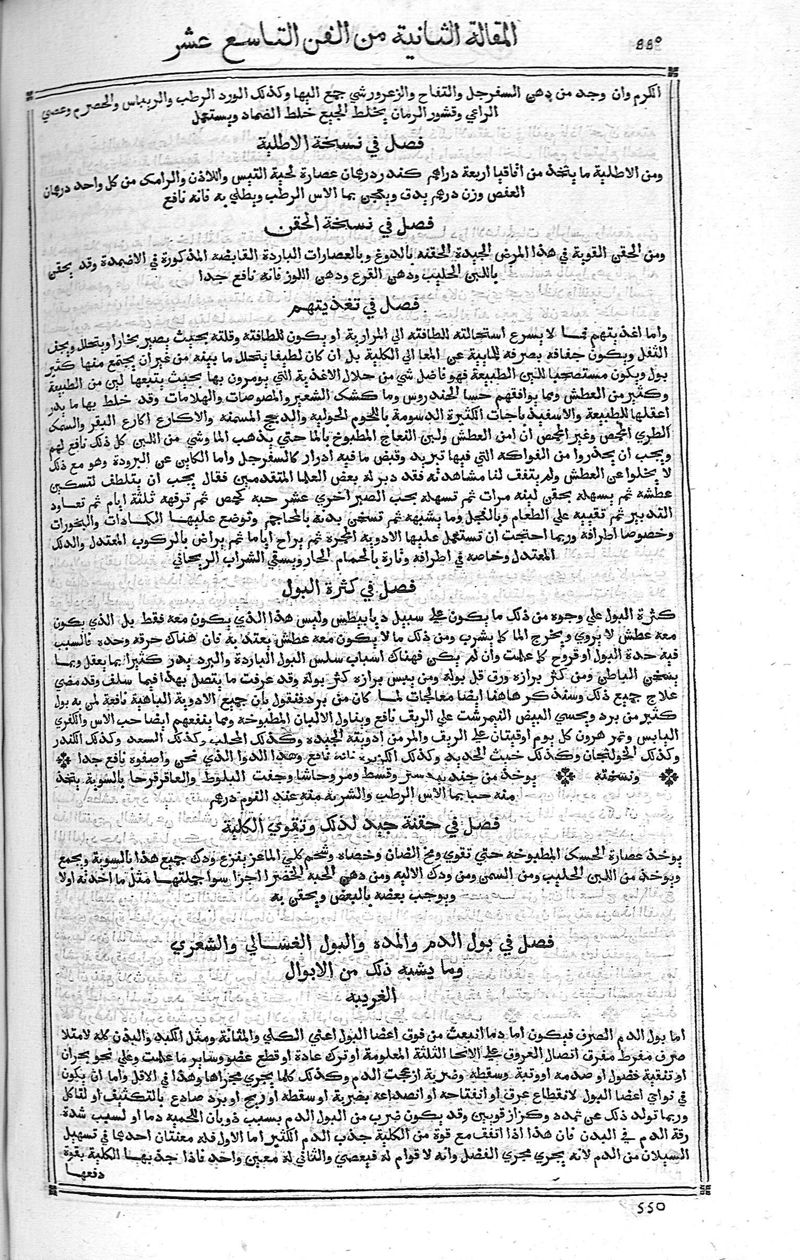 ٥٥٠ المقالة الثانية من الفن التاسع عشر
الكرم وان وجد من دهن السفرجل والتفاح والزعرور شي جمع اليها وكذلك الورد الرطب والريباس والحصرم وعصي
الراعي وقشور الرمان يخلط الجميع خلط الضماد ويستعمل
فصل في نسخة الاطلية
ومن الاطلية ما يتخذ من اقاقيا اربعة دراهم كندر درهمان عصارة لحية التيس واللاذن والرامك من كل واحد درهمان
العفص وزن درهم يدق ويعجن بما الاس الرطب ويطلي به فانه نافع
فصل في نسخة الحقن
ومن الحقن القوية في هذا المرض الجيدة الحقنه بالدوغ وبالعصارات الباردة القابضه المذكورة في الاضمدة وقد يحقن
باللبن الحليب ودهن القرع ودهن اللوز فانه نافع جدا
فصل في تغذيتهم
واما اغذيتهم فما لا يسرع استحالته للطافته الي المرارية او يكون للطافته وقلته بحيث يصير بخارا ويتحلل ويجف
الثفل ويكون جفافه بصرفه للمايية عن المعا الي الكلية بل ان كان لطيفا يتحلل ما ييته من غير ان يجتمع منها كثير
بول ويكون مستصحبا للين الطبيعة فهو فاضل شي من خلال الاغذية التي يومرون بها بحيث يتبعها لين من الطبيعة
وكثير من العطش ومما يوافقهم حسا الخندروس وما كشك الشعير والمصوصات والهلامات وقد خلط بها ما يدر
اعقلها للطبيعة والاسفيدباجات الكثيرة الدسومة باللحوم الحولية والدجج المسمنه والاكارع اكارع البقر والسمك
الطري المحمض وغير المحمض ان امن العطش ولبن النعاج المطبوخ بالما حتي يذهب الما وشي من اللبن كل ذلك نافع لهم
ويجب ان يحذروا من الفواكه التي فيها تبريد وقبض ما فيه ادرار كالسفرجل واما الكاين عن البرودة وهو مع ذلك
لا يخلوا عن العطش ولم يتفف لنا مشاهدته فقد دبر له بعض العلما المتقدمين فقال يجب ان يتلطف لتسكين
عطشه ثم يسهله بحقن لينه مرات ثم تسهله بحب الصبر احدي عشر حبه كحمص ثم ترفهه ثلثة ايام ثم تعاود
التدبير ثم تقييه علي الطعام وبالفجل وما يشبهه ثم تسخن بدنه بالمحاجم وتوضع عليها الكمادات والبخورات
وخصوصا اطرافه وربما احتجت ان تستعمل عليها الادويه المحمره ثم يراح اياما ثم يراض بالركوب المعتدل والدلك
المعتدل وخاصه في اطرافه وتارة بالحمام الحار ويسقي الشراب الريحاني
فصل في كثرة البول
كثرة البول علي وجوه من ذلك ما يكون علي سبيل ديابيطس وليس هذا الذي يكون معه فقط بل الذي يكون
معه عطش لا يروي ويخرج الما كما يشرب ومن ذلك ما لا يكون معه عطش يعتد به فان هناك حرقه وحده فالسبب
فيه حدة البول او قروح كما علمت وان لم يكن فهناك اسباب سلس البول الباردة والبرد يدر كثيرا بما يعقل وبما
يسخن الباطن ومن كثر برازه ورق قل بوله ومن يبس برازه كثر بوله وقد عرفت ما يتصل بهذا فيما سلف وقد مضي
علاج جميع ذلك وسنذكر هاهنا ايضا معالجات لما كان من برد فنقول بان جميع الادوية الباهية نافعة لمن به بول
كثير من برد ويحسي البيض النيمرشت علي الريف نافع ويتناول الالبان المطبوخه ومما ينفعهم ايضا حب الاس والكمثري
اليابس وتمر هرون كل يوم اوقيتان علي الريف والمر من ادويته الجيده وكذلك المحلب وكذلك السعد وكذلك الكندر
وكذلك الخولنجان وكذلك خبث الحديد وكذلك الكزبره فانه نافع وهذا الدوا الذي نحن واصفوه نافع جدا
ونسخته يوخذ من جندبيدستر وقسط ومر وحاشا وجفت البلوط والعاقرقرحا بالسوية يتخذ
منه حبا بما الاس الرطب والشربه منه عند النوم درهم
فصل في حقنة جيد لذلك وتقوي الكلية
يوخذ عصارة الحسك المطبوخه حتي تقوي ومخ الضان وخصاه وشحم كلي الماعز يقرع ودك جميع هذا بالسوية ويجمع
ويوخذ من اللبن الحليب ومن السمن ومن ودك الالية ومن دهن الحبه الخضرا اجزا سوا جملتها مثل ما اخذته اولا
ويوجب بعضه بالبعض ويحقن به
فصل في بول الدم والمده والبول الغسالي والشعري
وما يشبه ذلك من الابوال
الغريبة
اما بول الدم الصرف فيكون اما دما انبعث من فوق اعضا البول اعني الكلي والمثانة ومثل الكبد والبدن كله لامتلا
صرف مفرط مفرق اتصال العروق علي الانحا الثلثة المعلومة او ترك عادة او قطع عضو وساير ما علمت وعلي نحو بحران
او تنقية فضول او صدمه او وثبة وسقطه وضربة ازعجت الدم وكذلك كلما يجري مجراها وهذا في الاقل واما ان يكون
في نواحي اعضا البول لانقطاع عرق او انفتاحه او انصداعه بضربة او سقطه او ريح او برد صادع بالتكثيف او لتاكل
وربما تولد ذلك عن تمدد وكزاز قويين وقد يكون ضرب من البول الدم بسبب ذوبان اللحمية دما او لسبب شدة
رقة الدم في البدن فان هذا اذا اتفف مع قوة من الكلية جذب الدم الكثير اما الاول فله معنتان احدهما في تسهيل
السيلان من الدم لانه يجري مجري الفضل وانه لا قوام له فيعصي والثاني له معين واحد فاذا جذبها الكلية بقوة
دفعها
550